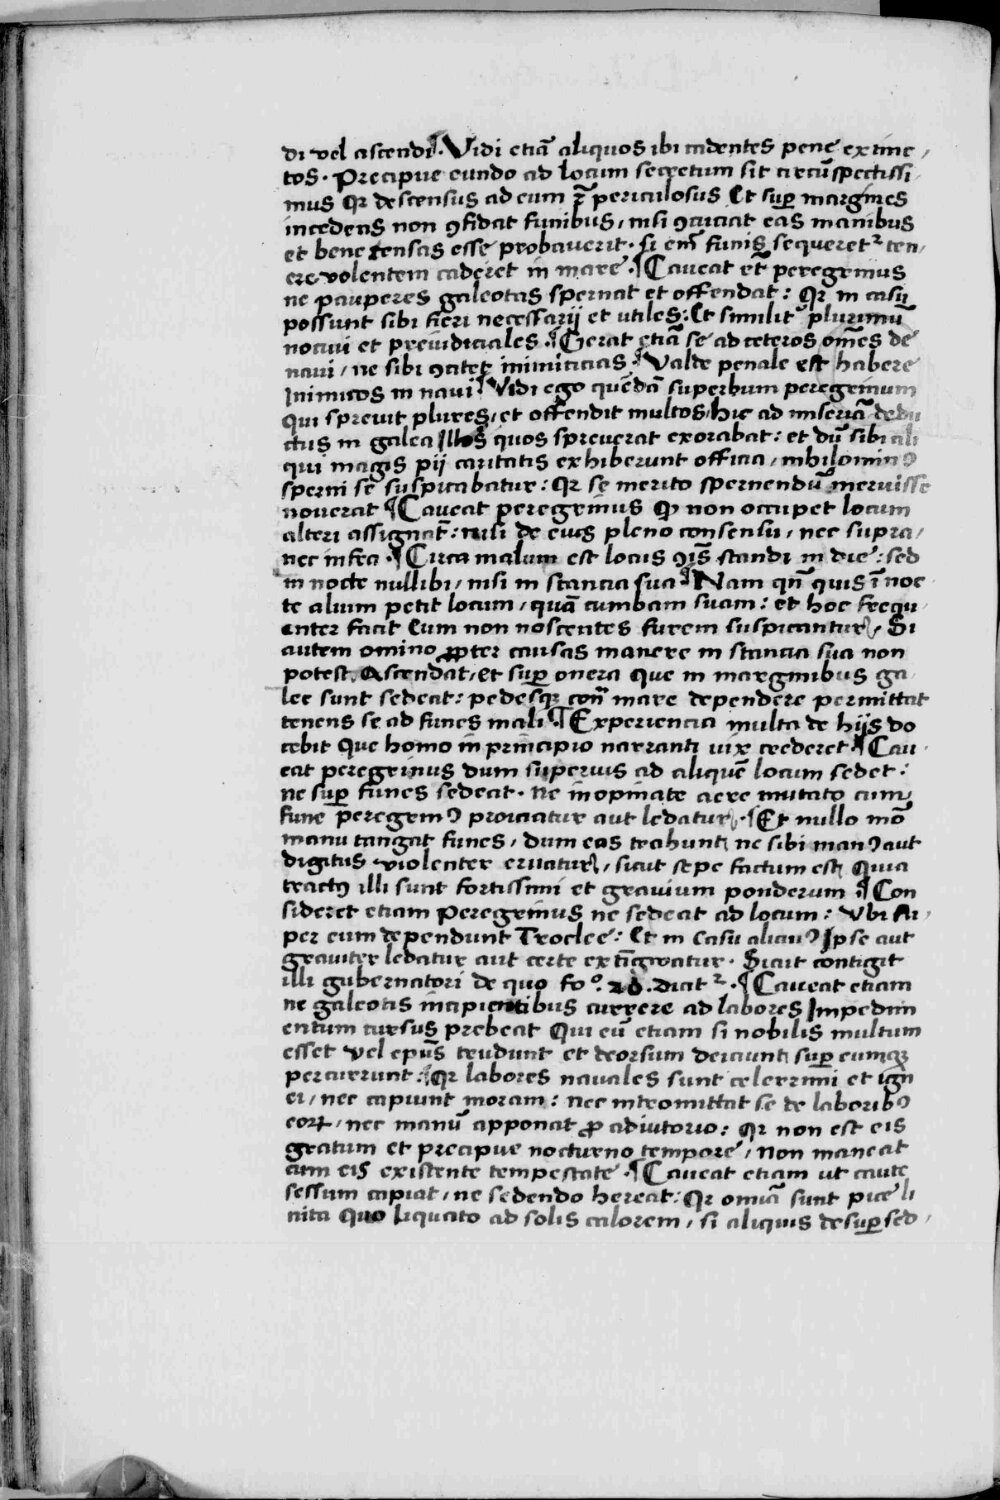 di vel ascendi. Vidi etiā aliquos ibi cadentes pene extinc,
tos. Precipue eundo ad locum secretum sit circūspectissi
mus Qr descensus ad eum ē periculosus Et suꝑ margines
incedens non ꝯfidat funibus, nisi ꝯcuciat eas manibus
et bene tensas esse probaverit. Si em̄ funis sequeret᷑ ten,
ere volentem caderet in mare. ¶ Caveat et̄ peregrinus
ne pauperes galeotas spernat et offendat: Qr in casu
possunt sibi fieri necessarij et utiles: Et similit᷑ plurimū
nocivi et preiudiciales. ¶ Gerat etiā se ad ceteros om̄es de
navi, ne sibi ꝯcitet inimicicias. ¶ Valde penale est habere
inimicos in navi. ¶ Vidi ego quēdā superbum peregrinum
Qui sprevit plures, et offendit multos, hic ad miseriā dedu
ctus in galea Illos quos spreverat exorabat: et dū sibi ali
qui magis pij caritatis exhiberunt officia, nihilominꝰ
sperni se suspicabatur: Qr se merito spernendū meruisse
noverat ¶ Caveat peregrinus Qꝫ non occupet locum
alteri assignat̄: nisi de eius pleno consensu, nec supra,
nec infra. ¶ Circa malum est locus ꝯīs standi in die: sed
in nocte nullibi, nisi in stancia sua ¶ Nam qn̄ quis ī noc
te alium petit locum, quā cumbam suam: et hoc frequ,
enter facit Eum non noscentes furem suspicantur, Si
autem omino ꝓpter causas manere in stancia sua non
potest. Ascendat, et suꝑ onera Que in marginibus ga
lee sunt sedeat: pedesqꝫ con̄ mare dependere permittat
tenens se ad funes mali. ¶ Experiencia multa de hijs do
cebit Que homo in principio narranti vix crederet ¶ Cav,
eat peregrinus dum superius ad aliquē locum sedet:
ne suꝑ funes sedeat. Ne inopinate aere mutato cum
fune peregrinꝰ proiciatur aut ledatur. ¶ Et nullo mō
manu tangat funes, dum eas trahunt, ne sibi manꝰ aut
digitus violenter eruatur, sicut sepe factum est, Quia
tractꝰ illi sunt fortissimi et gravium ponderum ¶ Con
sideret etiam Peregrinus ne sedeat ad locum: Ubi su,
per eum dependunt Troclee: Et in casu alicuiꝰ Ipse aut
graviter ledatur aut certe extīgwatur. Sicut contigit
illi gubernatori de quo fo°. 28. dicit᷑. ¶ Caveat etiam
ne galeotis incipientibus currere ad labores Impedim
entum cursus prebeat Qui eū etiam si nobilis multum
esset vel ep̄us trudunt et deorsum deiciunt, suꝑ eumqꝫ
percurrunt: ¶ Qr labores navales sunt celerrimi et ign
ei, nec capiunt moram: nec intromittat se de laboribꝰ
eoꝝ, nec manū apponat ꝓ adiutorio: Qr non est eis
gratum et precipue nocturno tempore, non maneat
cum eis existente tempestate. ¶ Caveat etiam ut caute
sessum capiat, ne sedendo hereat: Qr omīa sunt pice li
nita Quo liquato ad solis calorem, si aliquis desuꝑ sed,